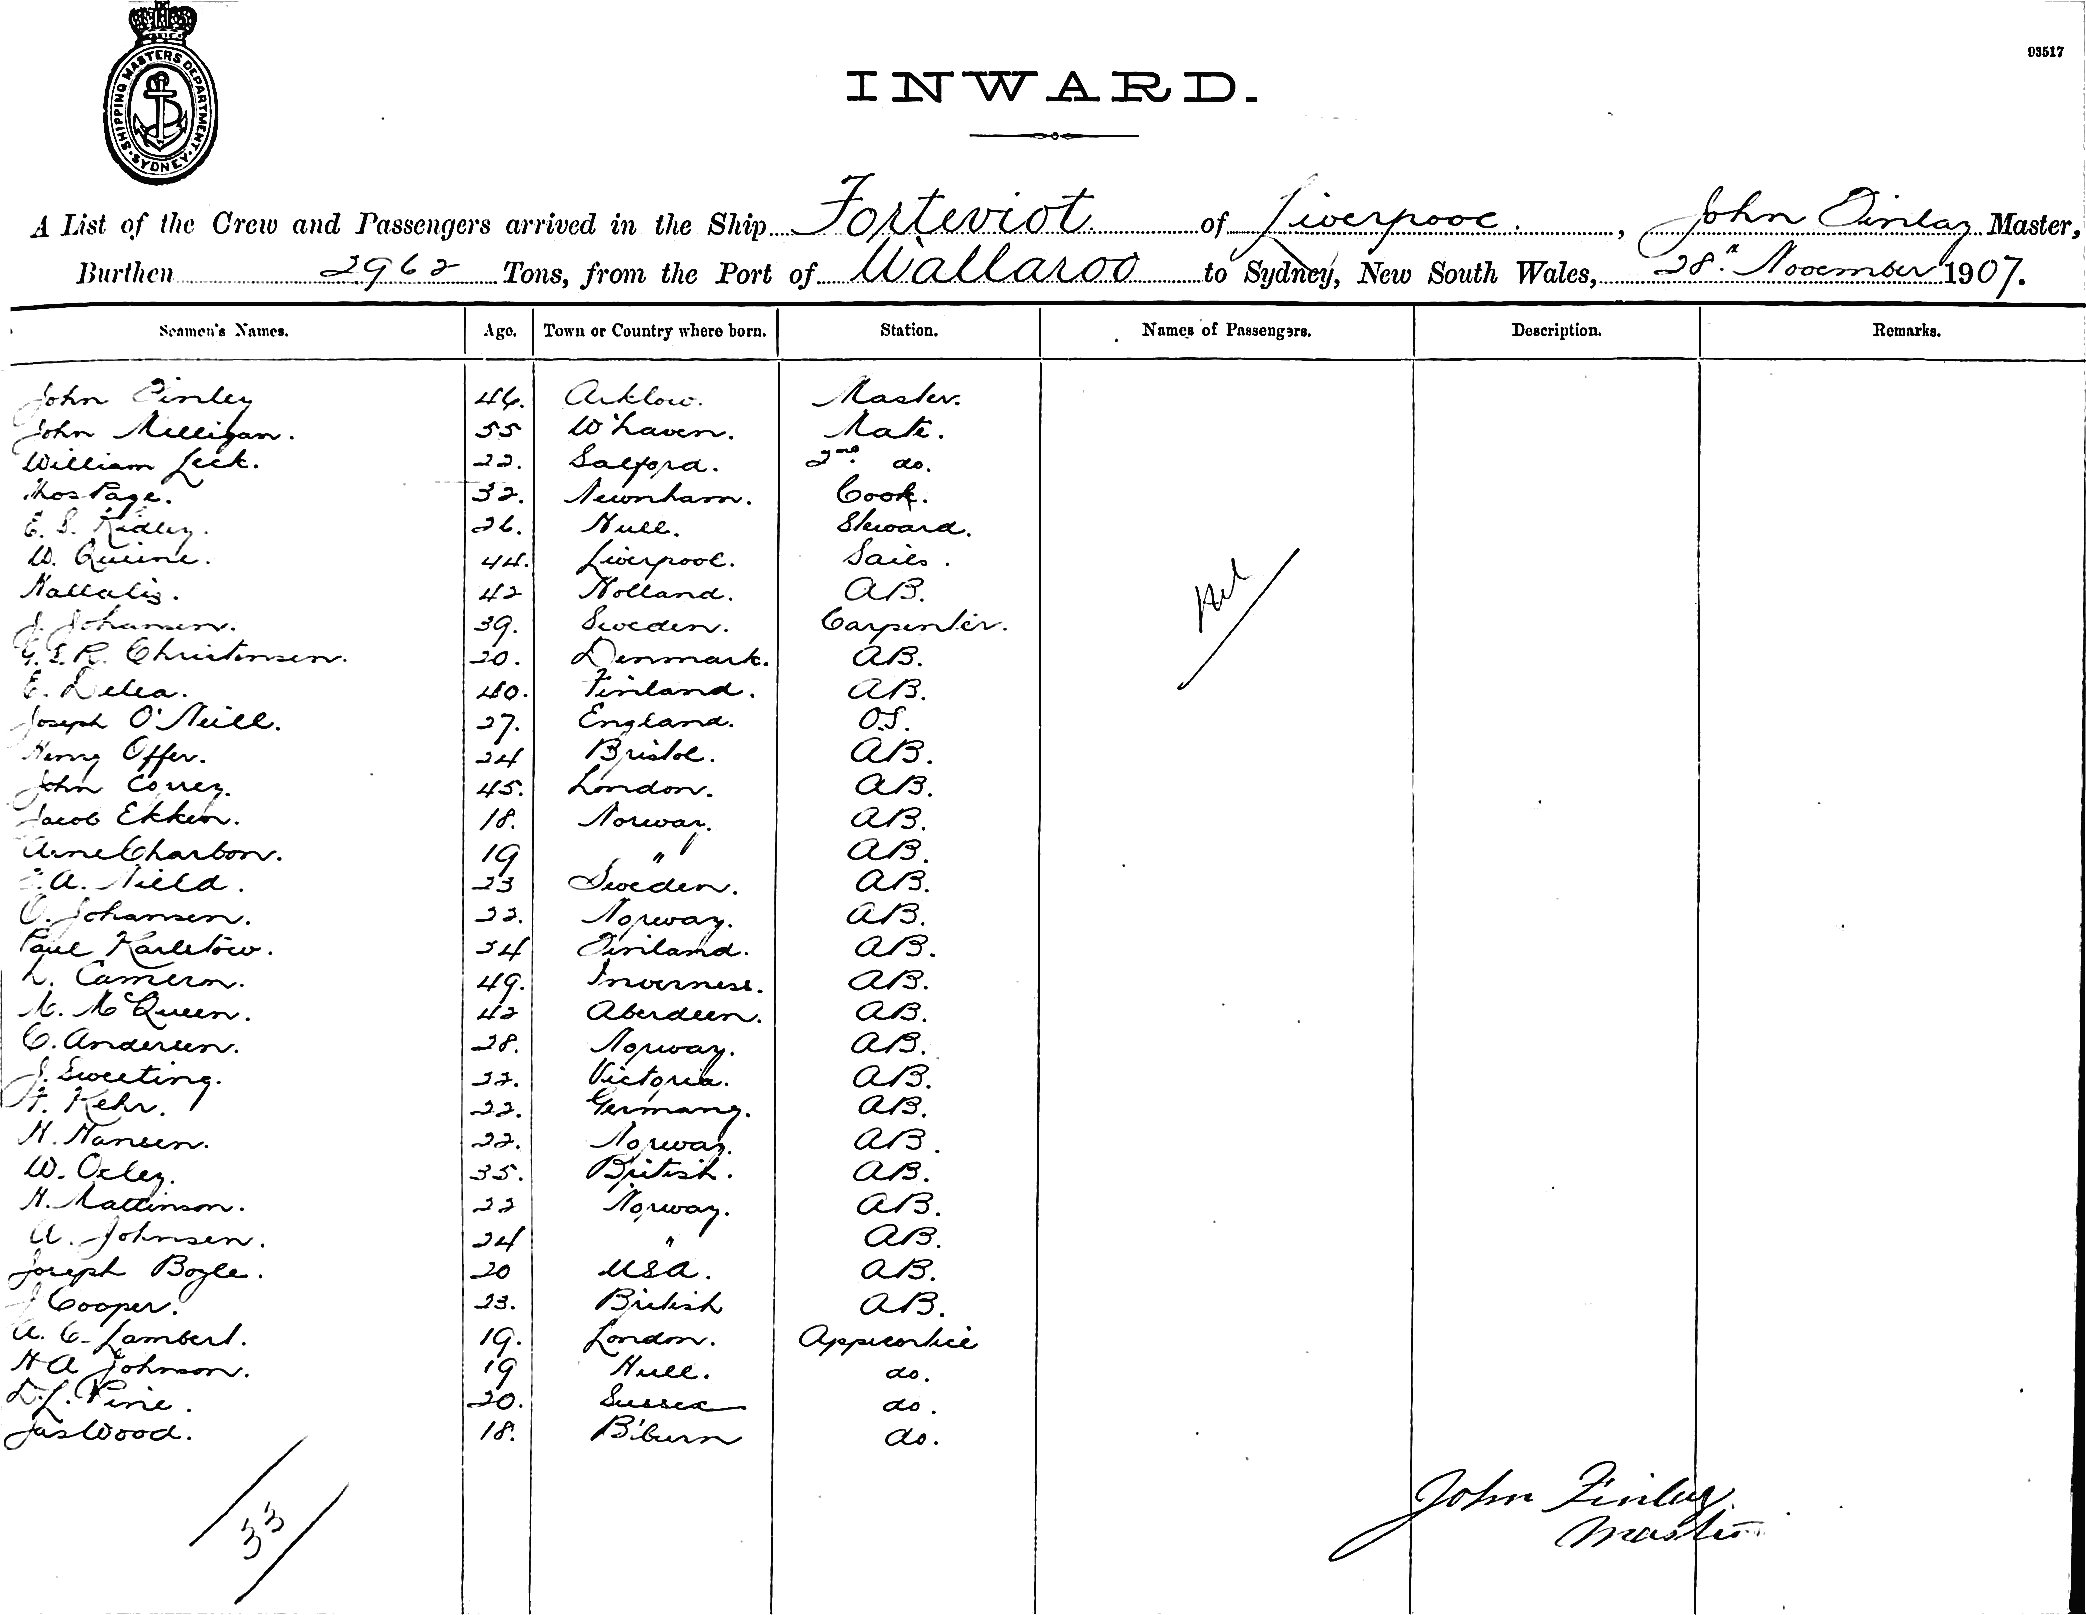 SHIPPING MASTERS DEPARTMENT
SYDNEY
93517
INWARD.
A List of the Crew and Passengers arrived in the Ship Forteviot of Liverpool, John Finlay Master,
Burthen 2962 Tons, from the Port of Wallaroo to Sydney, New South Wales, 28th November 1907.
Seamen's Names. Age. Town or Country where born. Station. Names of Passengers. Description. Remarks.
John Finley 46. Arklow. Master.
John Milligan. 55 W'haven. Mate.
William Leck. 22. Salford. 2nd do.
Thos Page. 32. Newnham. Cook.
E. S. Ridley. 26. Hull. Steward.
W. Quine. 44. Liverpool. Sails.
42 Holland. AB.
J. Johansen. 39. Sweden. Carpenter.
Christensen. 20. Denmark. AB.
E. Delea. 40. Finland. AB.
Joseph O'Neill. 27. England. O.S.
Henry Offer. 24 Bristol. AB.
John Correy. 45. London. AB.
Jacob Ekken. 18. Norway. AB.
Arne Charbon. 19 " AB.
A. Nield. 23 Sweden. AB.
O. Johansen. 22. Norway. AB.
Paul Karletow. 34 Finland. AB.
L. Cameron. 49. Inverness. AB.
M. McQueen. 42 Aberdeen. AB.
C. Andersen. 28. Norway. AB.
J. Sweeting. 22. Victoria. AB.
F. Kehr. 22. Germany. AB.
H. Hansen. 22. Norway. AB.
W. Oxley. 35. British. AB.
H. Mattinson. 22 Norway. AB.
A. Johnsen. 24 " AB.
Joseph Boyle. 20 USA. AB.
J Cooper. 23. British AB.
A. C. Lambert. 19. London. Apprentice
H A Johnson. 19 Hull. do.
D. L. Pine. 20. Sussex do.
Jas Wood. 18. B'burn do.
Nil
33
John Finlay.
Master